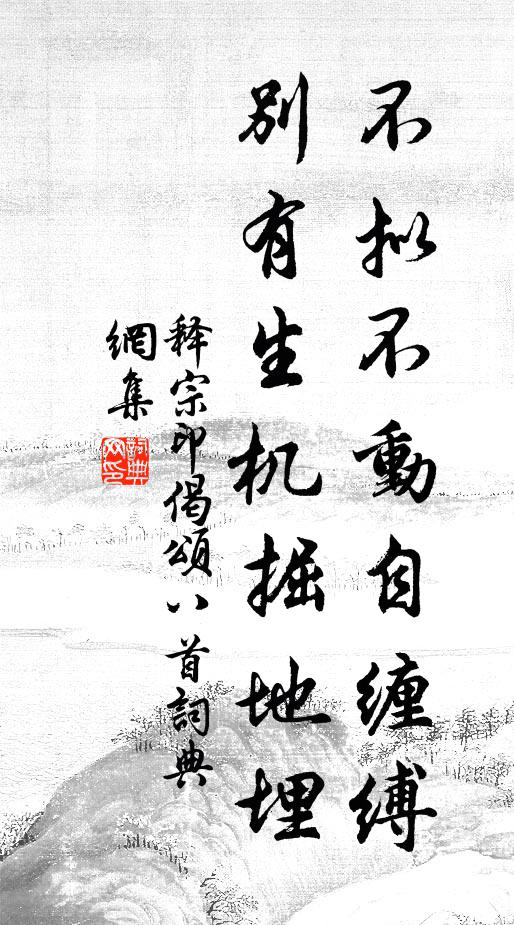 不拟不動自缠缚
别有生机掘地埋
释宗印偈頌八首詞典
網集
詞典
网印